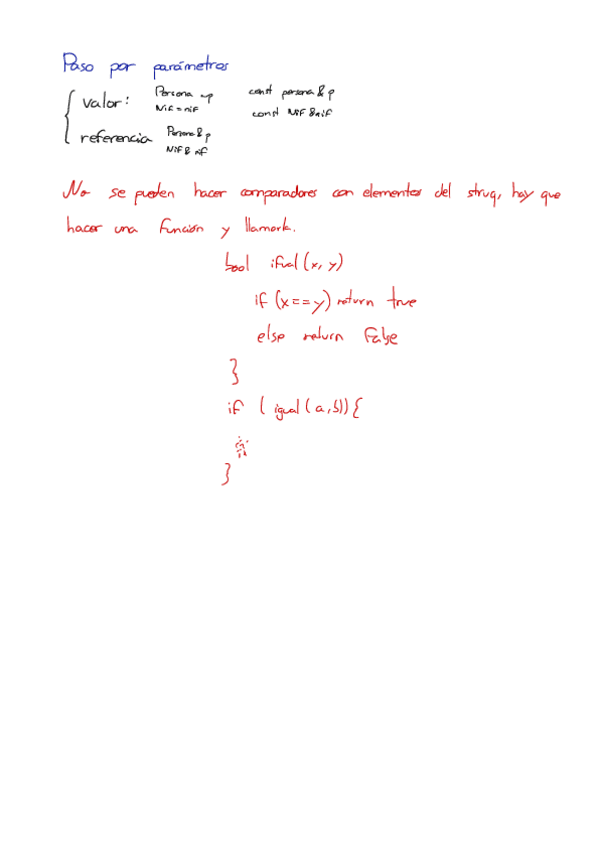 Paso por parámetros
valor: Persona p const persona & p
Nif = nif const NIF & nif
referencia Persona & p
NIF & nif
No se pueden hacer comparadores con elementos del struq, hay que
hacer una función y llamarla.
bool igual (x, y)
if (x == y) return true
else return False
}
if ( igual (a, b)) {
}